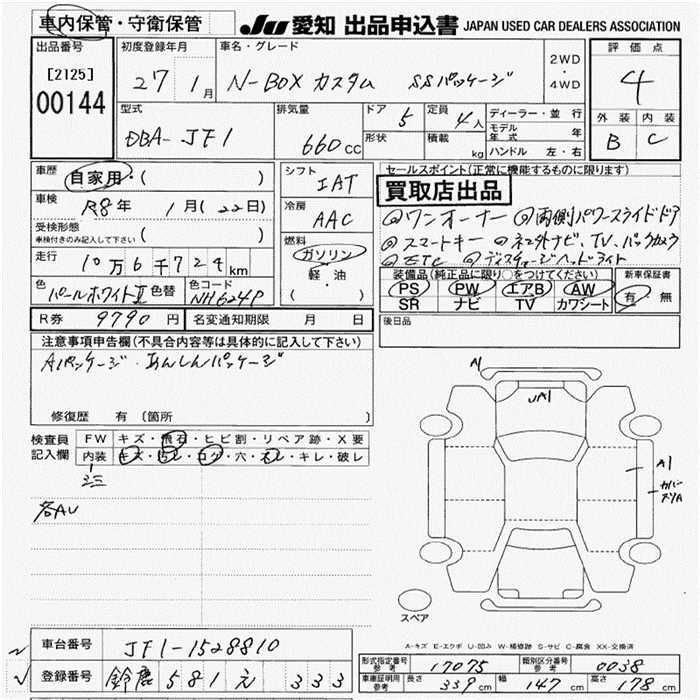 車内保管・守衛保管 JU 愛知 出品申込書 JAPAN USED CAR DEALERS ASSOCIATION
出品番号 初度登録年月 車名・グレード 評価点
[2125] 27 1月 N-BOX カスタム SSパッケージ 2WD・4WD 4
00144
型式 排気量 ドア 定員 ディーラー・並行 外装 内装
DBA- JF1 660cc 5 4人 モデル年式 年 B C
形状 積載 kg ハンドル 左・右
車歴 自家用・( ) シフト IAT セールスポイント(正常に機能するものに限ります)
車検 R8年 1月(22日) 冷房 AAC 買取店出品
受検形態 車検付きのみ記入して下さい ( ) ◎ワンオーナー ◎両側パワースライドドア
走行 10万6千724km 燃料 ガソリン・軽油 ( ) ◎スマートキー ◎ ナビ、TV、バックカメラ
◎ETC ◎ディスチャージヘッドライト
色 パールホワイトⅡ 色替 色コード NH624P 装備品(純正品に限り○をつけてください) 新車保証書
PS PW エアB AW 有・無
SR ナビ TV カワシート
R券 9790円 名変通知期限 月 日 後日品
注意事項申告欄(不具合内容等は具体的に記入して下さい)
A1パッケージ・あんしんパッケージ
修復歴 有 (箇所
検査員記入欄 FW キズ・飛石・ヒビ割・リペア跡・X要
内装 キズ・汚レ・コゲ・穴・スレ・キレ・破レ
各AU
A1
UA1
A1
カバースリA
スペア
A-キズ E-エクボ U-凹み W-補修跡 S-サビ C-腐食 XX-交換済
車台番号 JF1-1528810
登録番号 鈴鹿 581 え 333
形式指定番号 参考 17075 類別区分番号 参考 0038
車庫証明用 参考 長さ 339cm 幅 147cm 高さ 178cm